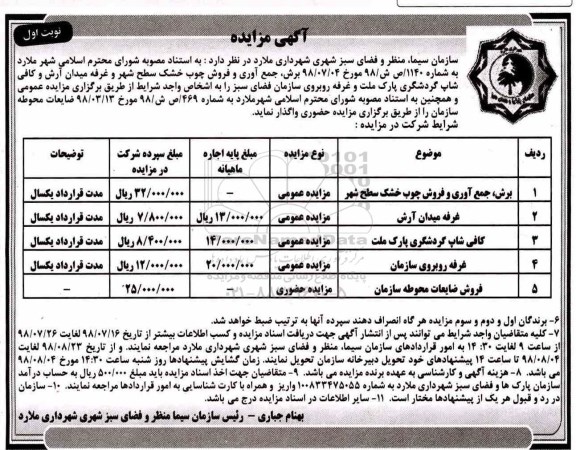 نوبت اول
آگهی مزایده
سازمان سیما، منظر و فضای سبز شهری شهرداری ملارد در نظر دارد : به استناد مصوبه شورای محترم اسلامی شهر ملارد
به شماره ۱۱۴۰/ص ش/۹۸ مورخ ۹۸/۰۷/۰۴ برش، جمع آوری و فروش چوب خشک سطح شهر و غرفه میدان آرش و کافی
شاپ گردشگری پارک ملت و غرفه روبروی سازمان فضای سبز را به اشخاص واجد شرایط از طریق برگزاری مزایده عمومی
و همچنین به استناد مصوبه شورای محترم اسلامی شهرملارد به شماره ۴۶۹/ص ش/۹۸ مورخ ۹۸/۰۳/۱۳ ضایعات محوطه
سازمان را از طریق برگزاری مزایده حضوری واگذار نماید.
شرایط شرکت در مزایده :
ردیف موضوع نوع مزایده مبلغ پایه اجاره ماهیانه مبلغ سپرده شرکت در مزایده توضیحات
۱ برش، جمع آوری و فروش چوب خشک سطح شهر مزایده عمومی – ۳۲/۰۰۰/۰۰۰ ریال مدت قرارداد یکسال
۲ غرفه میدان آرش مزایده عمومی ۱۳/۰۰۰/۰۰۰ ریال ۷/۸۰۰/۰۰۰ ریال مدت قرارداد یکسال
۳ کافی شاپ گردشگری پارک ملت مزایده عمومی ۱۴/۰۰۰/۰۰۰ ۸/۴۰۰/۰۰۰ ریال مدت قرارداد یکسال
۴ غرفه روبروی سازمان مزایده عمومی ۲۰/۰۰۰/۰۰۰ ۱۲/۰۰۰/۰۰۰ ریال مدت قرارداد یکسال
۵ فروش ضایعات محوطه سازمان مزایده حضوری – ۲۵/۰۰۰/۰۰۰ –
۶- برندگان اول و دوم و سوم مزایده هر گاه انصراف دهند سپرده آنها به ترتیب ضبط خواهد شد.
۷- کلیه متقاضیان واجد شرایط می توانند پس از انتشار آگهی جهت دریافت اسناد مزایده و کسب اطلاعات بیشتر از تاریخ ۹۸/۰۷/۱۶ لغایت ۹۸/۰۷/۲۶
از ساعت ۹ لغایت ۱۴:۳۰ به امور قراردادهای سازمان سیما، منظر و فضای سبز شهری شهرداری ملارد مراجعه نمایند. و از تاریخ ۹۸/۰۸/۲۳ لغایت
۹۸/۰۸/۰۴ تا ساعت ۱۴ پیشنهادهای خود تحویل دبیرخانه سازمان تحویل نمایند. زمان گشایش پیشنهادها روز شنبه ساعت ۱۴:۳۰ مورخ ۹۸/۰۸/۰۴
می باشد. ۸- هزینه آگهی و کارشناسی به عهده برنده مزایده می باشد. ۹- متقاضیان جهت اخذ اسناد مزایده باید مبلغ ۵۰۰/۰۰۰ ریال به حساب درآمد
سازمان پارک ها و فضای سبز شهرداری ملارد به شماره ۱۰۰۸۳۳۴۷۵۰۵۵ واریز و همراه با کارت شناسایی به امور قراردادها مراجعه نمایند. ۱۰- سازمان
در رد و قبول هر یک از پیشنهادها مختار است. ۱۱- سایر اطلاعات در اسناد مزایده درج می باشد.
بهنام جباری – رئیس سازمان سیما منظر و فضای سبز شهری شهرداری ملارد